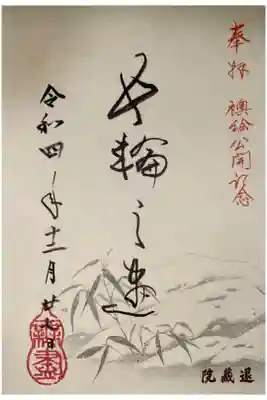 奉拝 襖絵公開記念
輪之
令和四年十二月廿日
退藏院